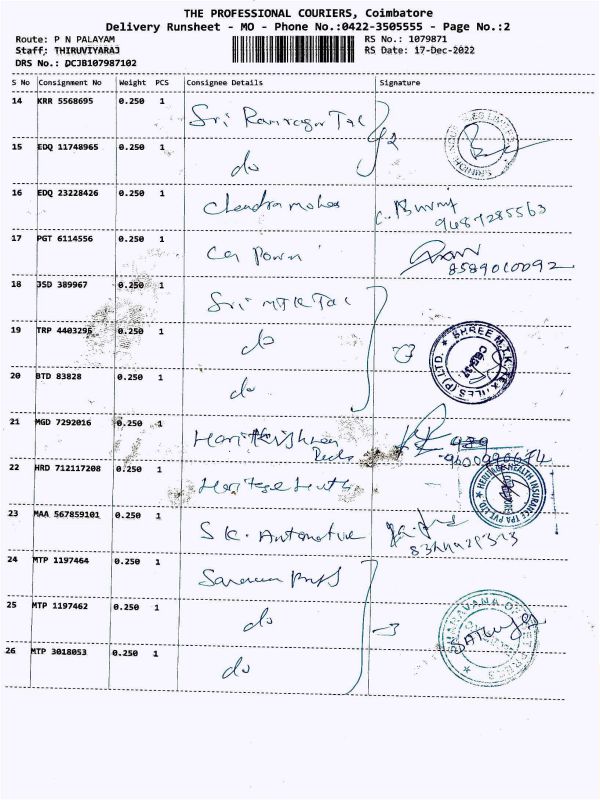 THE PROFESSIONAL COURIERS, Coimbatore
Delivery Runsheet - MO - Phone No.:0422-3505555 - Page No.:2
Route: P N PALAYAM RS No.: 1079871
Staff: THIRUVIYARAJ RS Date: 17-Dec-2022
DRS No.: DCJB107987102
S No Consignment No Weight PCS Consignee Details Signature
14 KRR 5568695 0.250 1 Sri
15 EDQ 11748965 0.250 1 do
16 EDQ 23228426 0.250 1 Chandra mohan
9487285563
17 PGT 6114556 0.250 1
8589010092
18 JSD 389967 0.250 1 Sri MTK Tex
19 TRP 4403296 0.250 1 do
SHREE M.T.K. TEXTILES (P) LTD.
20 BTD 83828 0.250 1 do
21 MGD 7292016 0.250 1 Hari Krishnan
22 HRD 712117208 0.250 1 Heritage Health
HERITAGE HEALTH INSURANCE TPA PVT LTD.
23 MAA 567859101 0.250 1 S K. Automotive
24 MTP 1197464 0.250 1
25 MTP 1197462 0.250 1 do
26 MTP 3018053 0.250 1 do